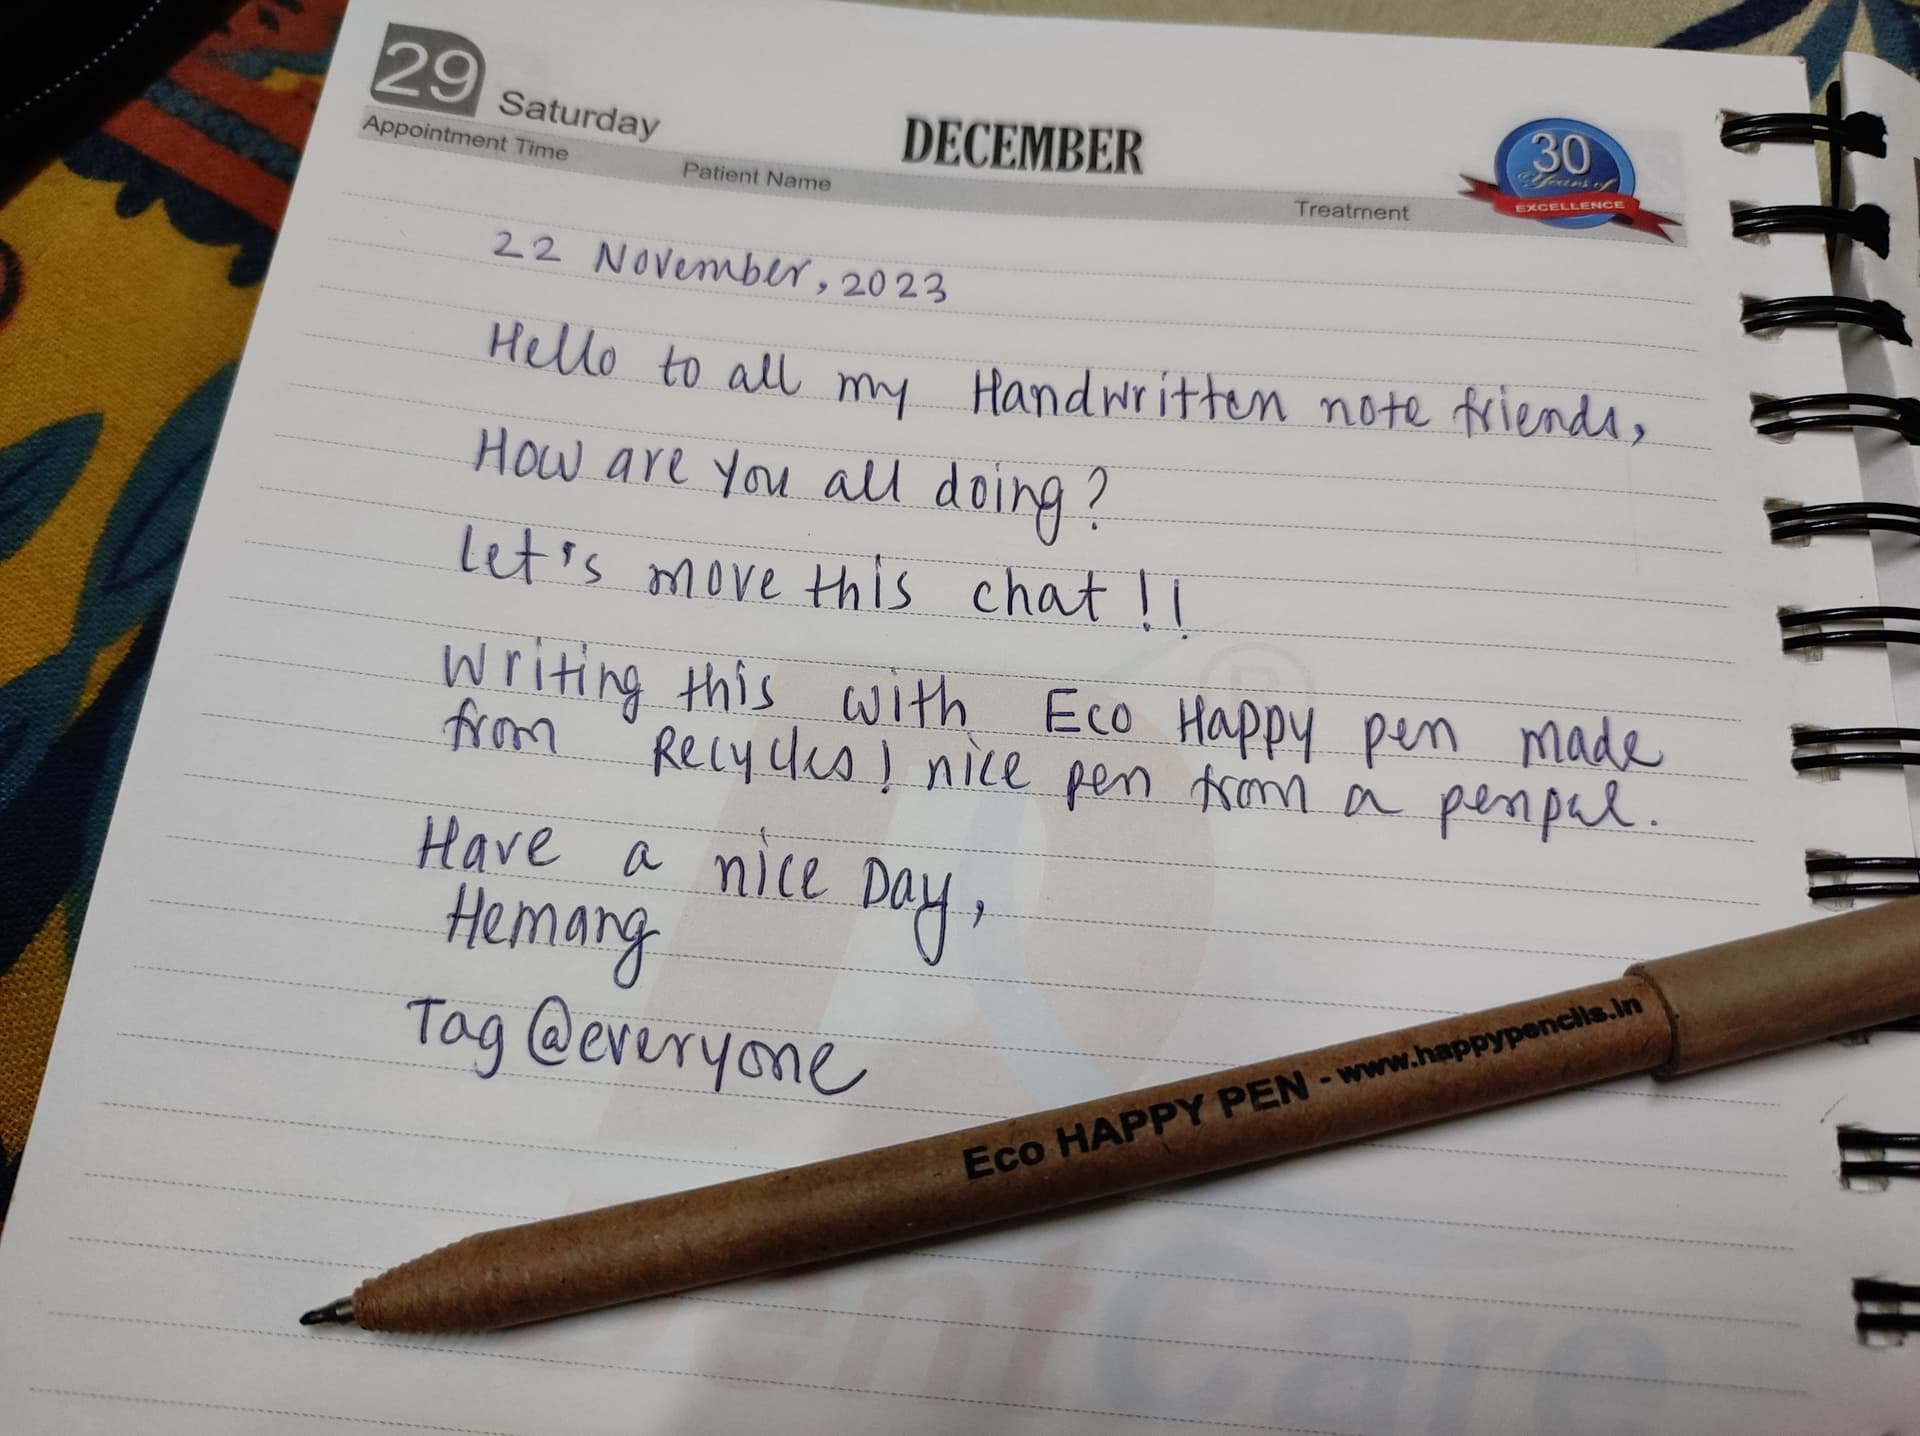 29 Saturday
DECEMBER
30
Years of
EXCELLENCE
Appointment Time Patient Name Treatment
22 November, 2023
Hello to all my Handwritten note friends,
How are you all doing?
Let's move this chat!!
Writing this with Eco Happy pen made
from Recycles! nice pen from a penpal.
Have a nice Day,
Hemang
Tag @everyone
Eco HAPPY PEN - www.happypencils.in
®
entCare